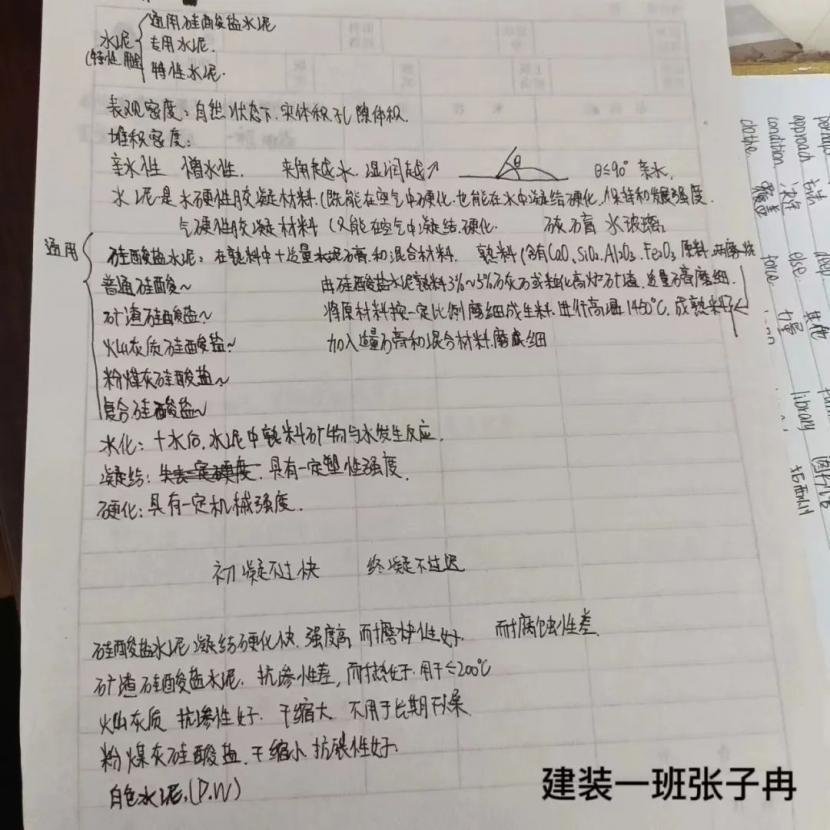 通用硅酸盐水泥
水泥 专用水泥.
(特性用途
特性水泥.
表观密度:自然状态下.实体积孔隙体积.
堆积密度:
亲水性 憎水性. 夹角越水.湿润越↗ θ θ≤90° 亲水.
水泥是水硬性胶凝材料.(既能在空气中硬化.也能在水中凝结硬化.保持和发展强度.
气硬性胶凝材料(又能在空气中凝结.硬化. 石膏 水玻璃
通用
硅酸盐水泥:在熟料中+适量水泥石膏.和混合材料. 熟料(含有CaO.SiO₂.Al₂O₃.Fe₂O₃原料
普通硅酸~ 由硅酸盐水泥熟料3%~5%石灰石或粒化高炉矿渣.适量石膏磨细.
矿渣硅酸盐~ 将原材料按一定比例磨细成生料.进行高温1450℃.成熟料
火山灰质硅酸盐~ 加入适量石膏和混合材料.磨成细
粉煤灰硅酸盐~
复合硅酸盐~
水化:+水后.水泥中熟料矿物与水发生反应.
凝结:失去一定硬度.具有一定塑性强度.
硬化:具有一定机械强度.
初凝不过快 终凝不过迟
硅酸盐水泥:凝结硬化快.强度高 耐磨性好. 耐腐蚀性差.
矿渣硅酸盐水泥.抗渗性差,耐热好.用于≤200℃
火山灰质 抗渗性好.干缩大 不用于长期干燥
粉煤灰硅酸盐.干缩小 抗裂性好
白色水泥.(P.W)
建装一班张子冉
approach 方法
condition
clothe 覆盖
force 力量
else 其他
library 图书馆